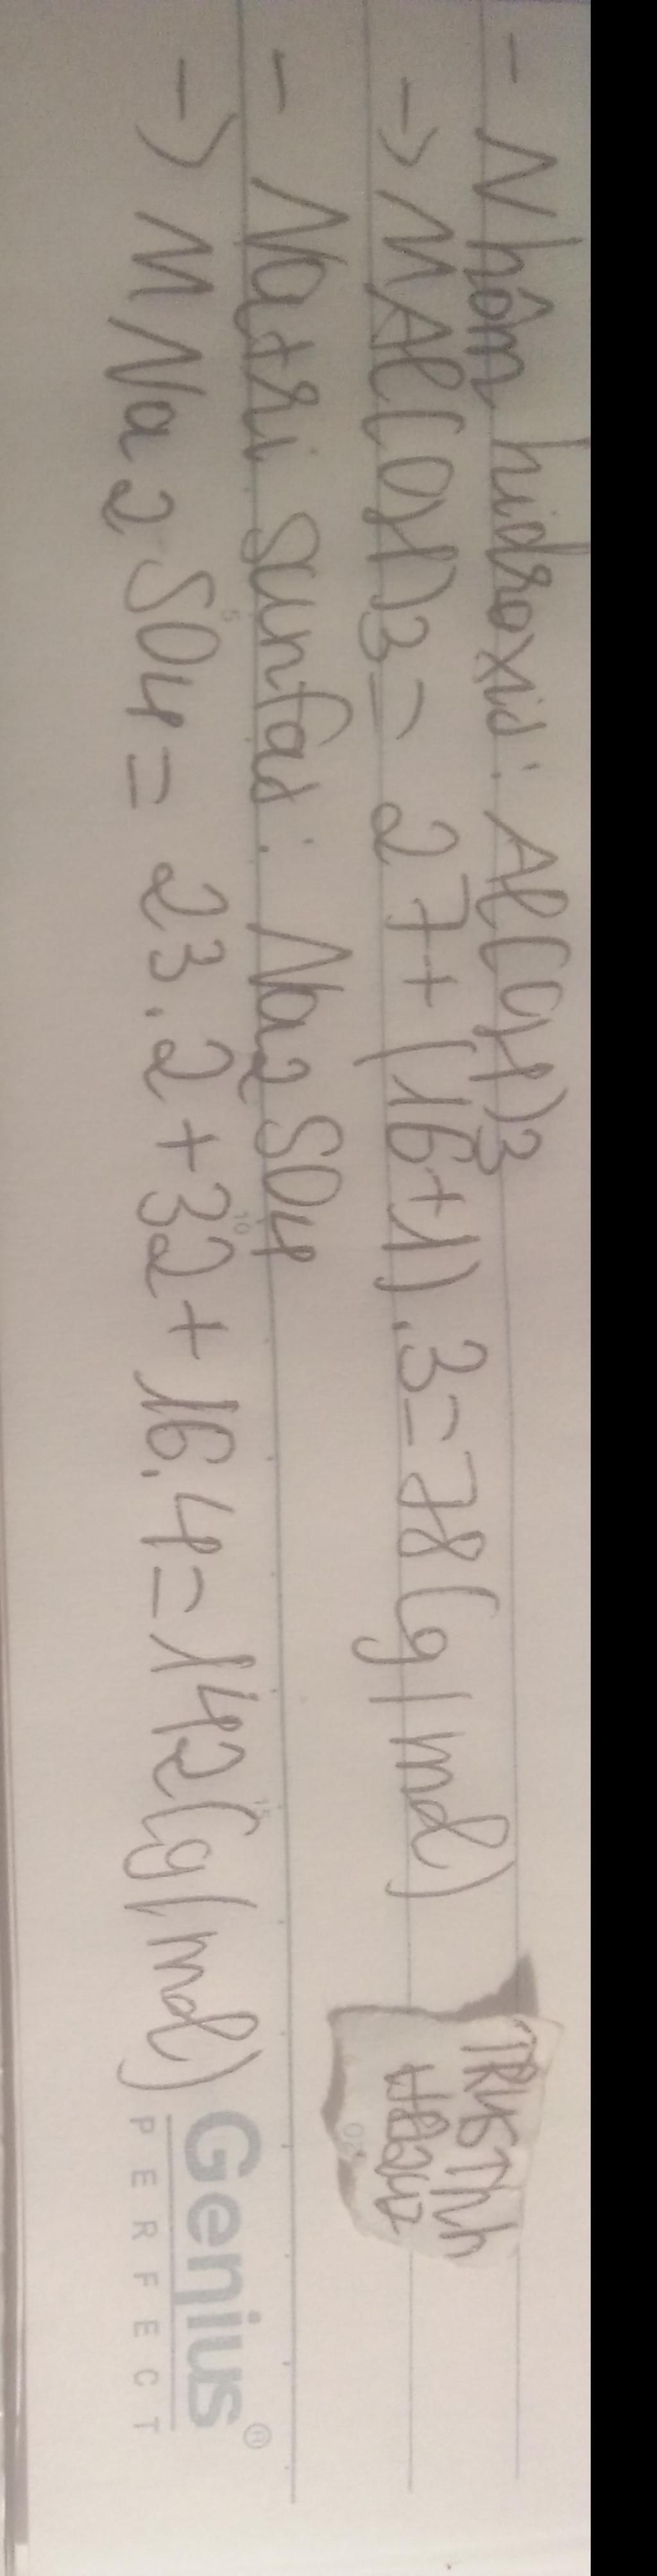 - Nhôm hidroxid: Al(OH)3
-> MAl(OH)3 = 27+(16+1).3=78(g/mol)
- Natri sunfat: Na2SO4
-> MNa2SO4 = 23.2+32+16.4=142(g/mol)
Genius®
PERFECT
5
10
15
20